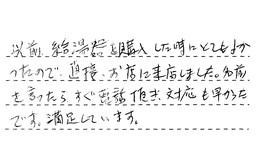 以前、給湯器を購入した時にとてもよか
ったので、直接、お店に来店しました。名前
を言ったら、すぐ電話頂き、対応も早かった
です。満足しています。